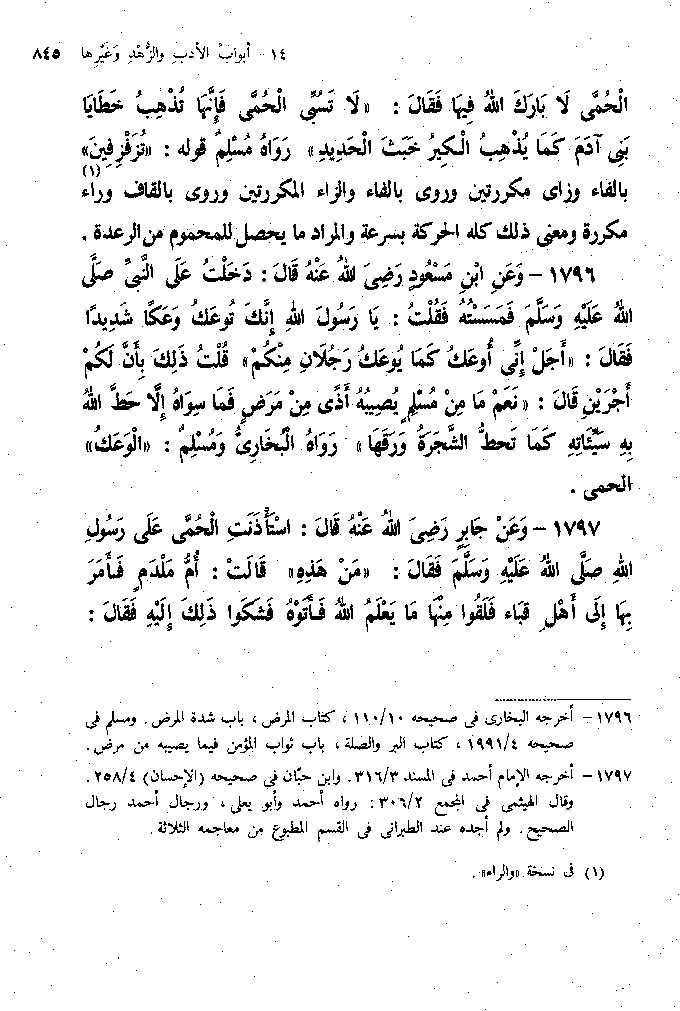 ١٤ - أبوابُ الأدبِ والزُّهْدِ وَغَيْرِها ٨٤٥
الْحُمَّى لَا بَارَكَ اللهُ فِيهَا فَقَالَ : «لَا تَسُبِّى الْحُمَّى فَإِنَّهَا تُذْهِبُ خَطَايَا
بَنِى آدَمَ كَمَا يُذْهِبُ الْكِيرُ خَبَثَ الْحَدِيدِ» رَوَاهُ مُسْلِمٌ قوله : «تُزَفْزِفِينَ»
بالفاء وزاى مكررتين وروى بالفاء والزاء المكررتين وروى بالقاف وراء (١)
مكررة ومعنى ذلك كله الحركة بسرعة والمراد ما يحصل للمحموم من الرعدة .
١٧٩٦ – وَعَنِ ابْنِ مَسْعُودٍ رَضِىَ اللهُ عَنْهُ قَالَ : دَخَلْتُ عَلَى النَّبِىِّ صَلَّى
اللهُ عَلَيْهِ وَسَلَّمَ فَمَسَسْتُهُ فَقُلْتُ : يَا رَسُولَ اللهِ إِنَّكَ تُوعَكُ وَعَكًا شَدِيدًا
فَقَالَ : «أَجَلْ إِنِّى أُوعَكُ كَمَا يُوعَكُ رَجُلَانِ مِنْكُمْ» قُلْتُ ذَلِكَ بِأَنَّ لَكُمْ
أَجْرَيْنِ قَالَ : «نَعَمْ مَا مِنْ مُسْلِمٍ يُصِيبُهُ أَذًى مِنْ مَرَضٍ فَمَا سِوَاهُ إِلَّا حَطَّ اللهُ
بِهِ سَيِّئَاتِهِ كَمَا تَحطُّ الشَّجَرَةُ وَرَقَهَا» رَوَاهُ الْبُخَارِىُّ وَمُسْلِمٌ : «الْوَعَكُ»
الحمى .
١٧٩٧ – وَعَنْ جَابِرٍ رَضِىَ اللهُ عَنْهُ قَالَ : اسْتَأْذَنَتِ الْحُمَّى عَلَى رَسُولِ
اللهِ صَلَّى اللهُ عَلَيْهِ وَسَلَّمَ فَقَالَ : «مَنْ هَذِهِ» قَالَتْ : أُمُّ مَلْدَمٍ فَأَمَرَ
بِهَا إِلَى أَهْلِ قَبَاء فَلَقُوا مِنْهَا مَا يَعْلَمُ اللهُ فَأَتَوْهُ فَشَكَوا ذَلِكَ إِلَيْهِ فَقَالَ :
١٧٩٦ – أخرجه البخارى فى صحيحه ١١٠/١٠ ، كتاب المرض ، باب شدة المرض . ومسلم فى
صحيحه ١٩٩١/٤ ، كتاب البر والصلة ، باب ثواب المؤمن فيما يصيبه من مرض .
١٧٩٧ – أخرجه الإمام أحمد فى المسند ٣١٦/٣ . وابن حبّان فى صحيحه (الإحسان) ٢٥٨/٤ .
وقال الهيثمى فى المجمع ٣٠٦/٢ : رواه أحمد وأبو يعلى ، ورجال أحمد رجال
الصحيح . ولم أجده عند الطبرانى فى القسم المطبوع من معاجمه الثلاثة .
(١) فى نسخة «والراء» .